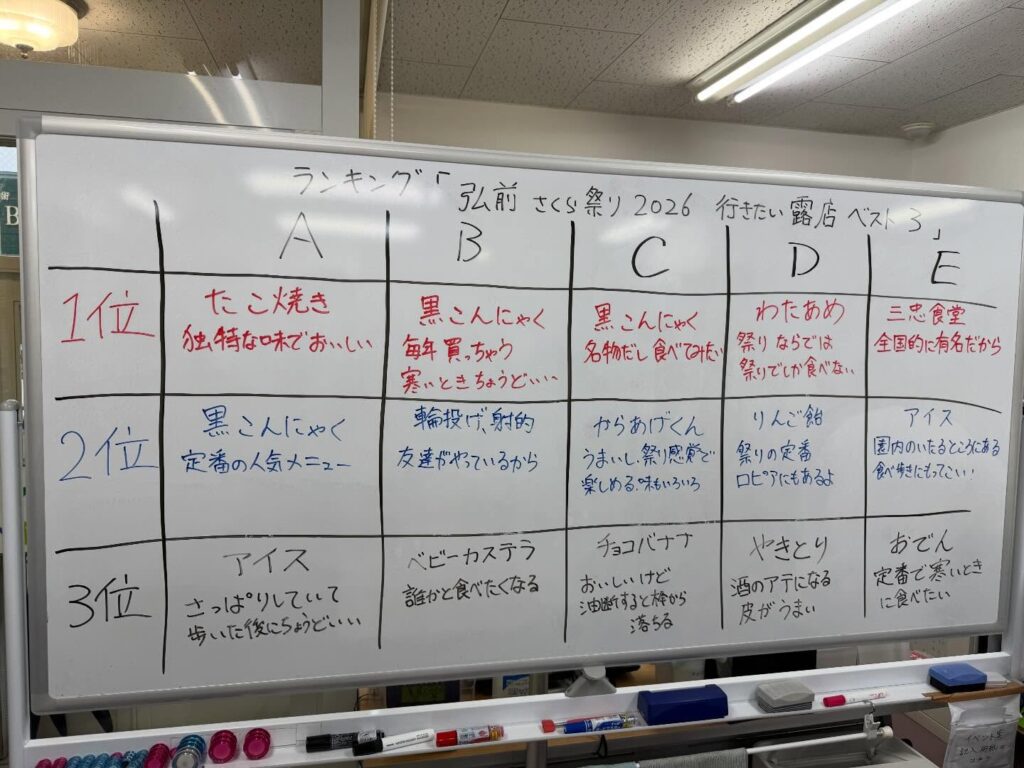 ランキング「弘前 さくら祭り 2026 行きたい露店 ベスト3」
A
B
C
D
E
1位
たこ焼き
独特な味でおいしい
黒こんにゃく
毎年買っちゃう
寒いときちょうどいい
黒こんにゃく
名物だし食べてみたい
わたあめ
祭りならでは
祭りでしか食べない
三忠食堂
全国的に有名だから
2位
黒こんにゃく
定番の人気メニュー
輪投げ、射的
友達がやっているから
からあげくん
うまいし、祭り感覚で
楽しめる。味もいろいろ
りんご飴
祭りの定番
ロピアにもあるよ
アイス
園内のいたるところにある
食べ歩きにもってこい!
3位
アイス
さっぱりしていて
歩いた後にちょうどいい
ベビーカステラ
誰かと食べたくなる
チョコバナナ
おいしいけど
油断すると棒から
落ちる
やきとり
酒のアテになる
皮がうまい
おでん
定番で寒いとき
に食べたい
B
イベント